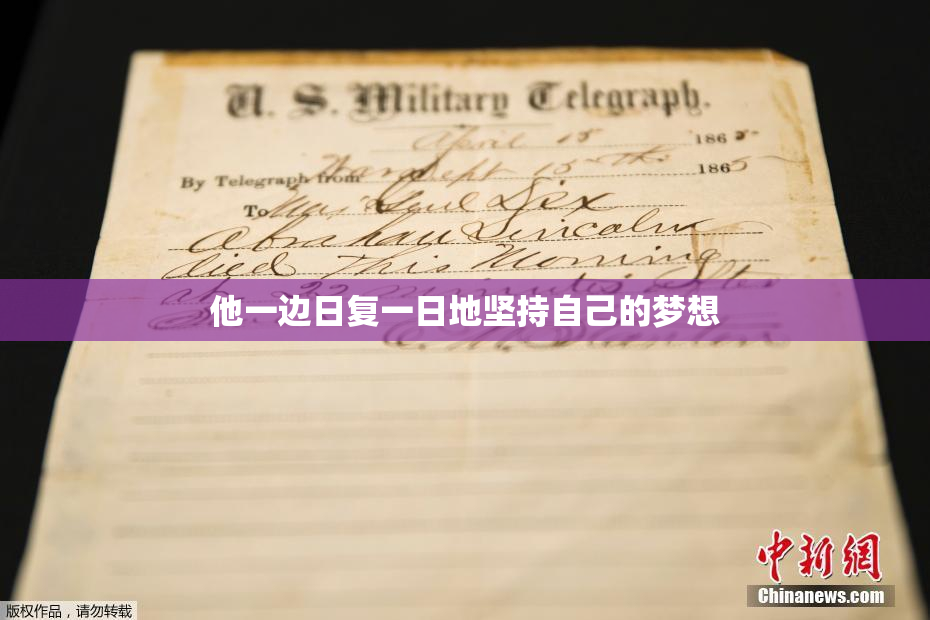 U. S. Military Telegraph.
April 15 1865
By Telegraph from War Dept 15th 1865
To Maj Genl Dix
Abraham Lincoln
died This Morning
at 22 minutes after
他一边日复一日地坚持自己的梦想
E. M. Stanton
中新网
Chinanews.com
版权作品，请勿转载